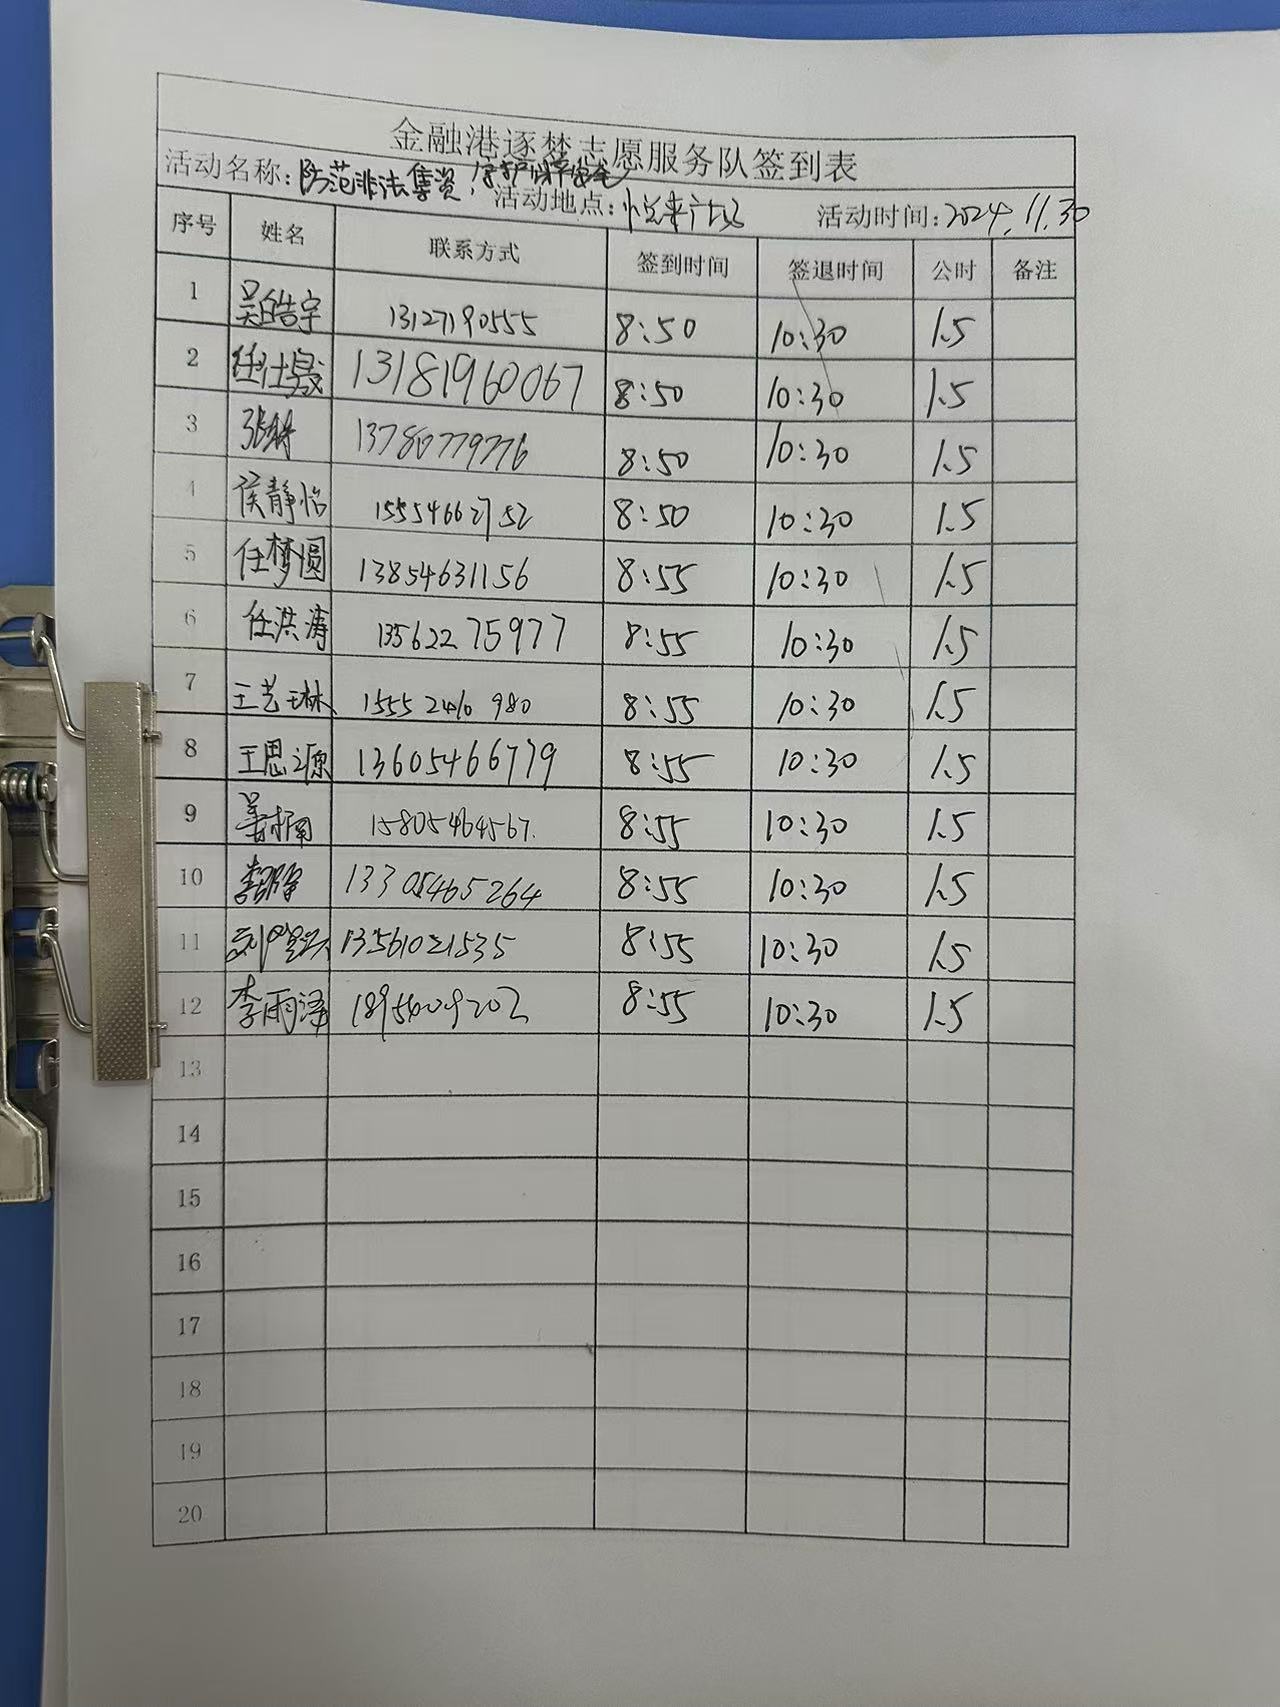 金融港逐梦志愿服务队签到表
活动名称：防范非法集资，守护 活动地点：悦来广场 活动时间：2024.11.30
序号 姓名 联系方式 签到时间 签退时间 公时 备注
1 吴皓宇 13127190555 8:50 10:30 1.5
2 任仕晟 13181960067 8:50 10:30 1.5
3 张 13780779776 8:50 10:30 1.5
4 侯静怡 15554662752 8:50 10:30 1.5
5 任梦圆 13854631156 8:55 10:30 1.5
6 任洪涛 13562275977 8:55 10:30 1.5
7 王艺琳 1555 2410 980 8:55 10:30 1.5
8 王思源 13605466779 8:55 10:30 1.5
9 姜楠 15805464567. 8:55 10:30 1.5
10 李 13305465264 8:55 10:30 1.5
11 刘 13561021535 8:55 10:30 1.5
12 李雨泽 8:55 10:30 1.5
13
14
15
16
17
18
19
20